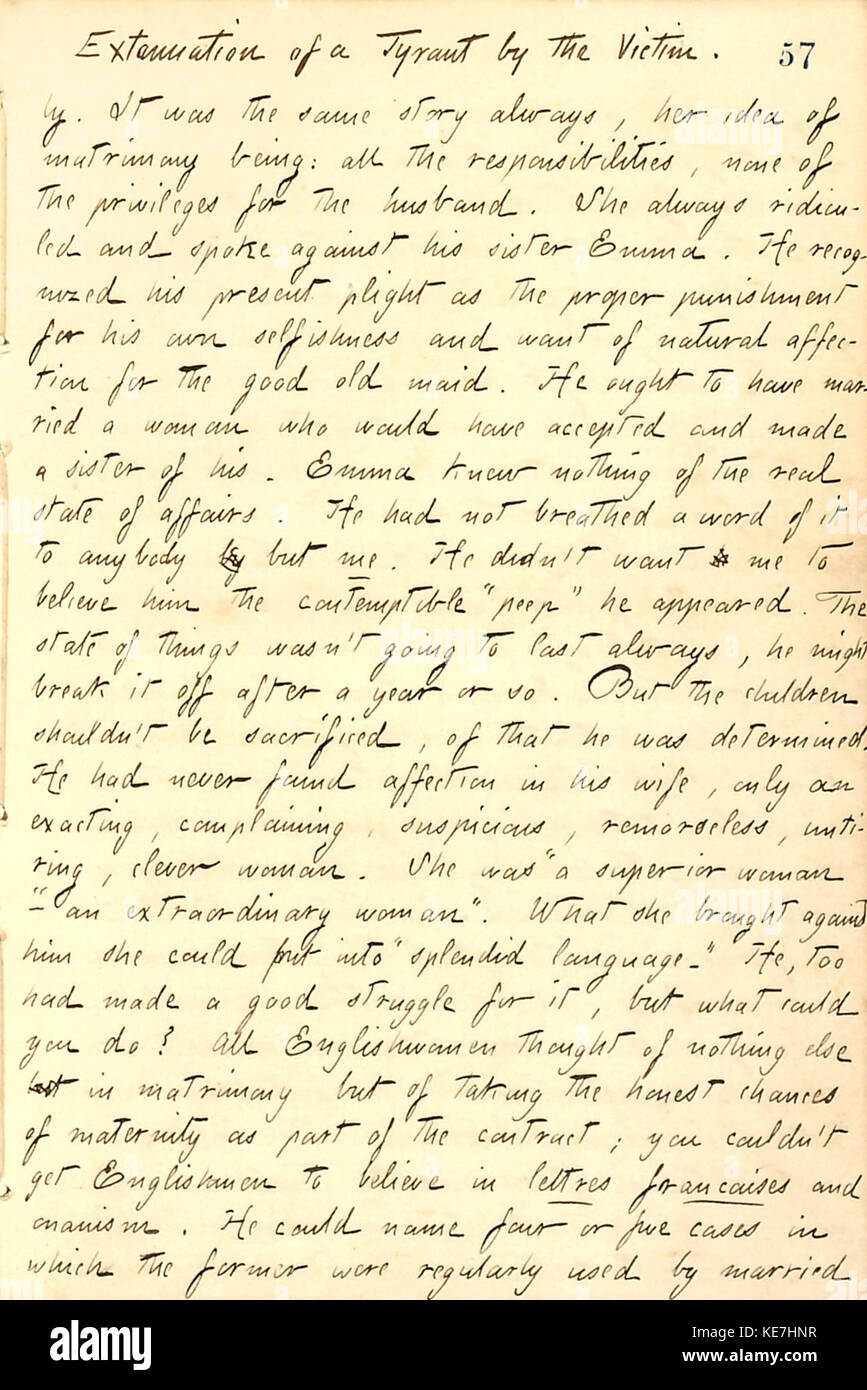 Extenuation of a Tyrant by the Victim.
57
ly. It was the same story always, her idea of
matrimony being: all the responsibilities, none of
the privileges for the husband. She always ridicu-
led and spoke against his sister Emma. He recog-
nized his present plight as the proper punishment
for his own selfishness and want of natural affec-
tion for the good old maid. He ought to have mar-
ried a woman who would have accepted and made
a sister of his. Emma knew nothing of the real
state of affairs. He had not breathed a word of it
to anybody by but me. He didn't want me to
believe him the contemptible "peep" he appeared. The
state of things wasn't going to last always, he might
break it off after a year or so. But the children
shouldn't be sacrificed, of that he was determined.
He had never found affection in his wife, only an
exacting, complaining, suspicious, remorseless, unti-
ring, clever woman. She was "a superior woman
"- an extraordinary woman". What she brought against
him she could put into "splendid language-" He, too
had made a good struggle for it, but what could
you do? All Englishwomen thought of nothing else
but in matrimony but of taking the honest chances
of maternity as part of the contract; you couldn't
get Englishmen to believe in lettres francaises and
onanism. He could name four or five cases in
which the former were regularly used by married
alamy
Image ID: KE7HNR
www.alamy.com